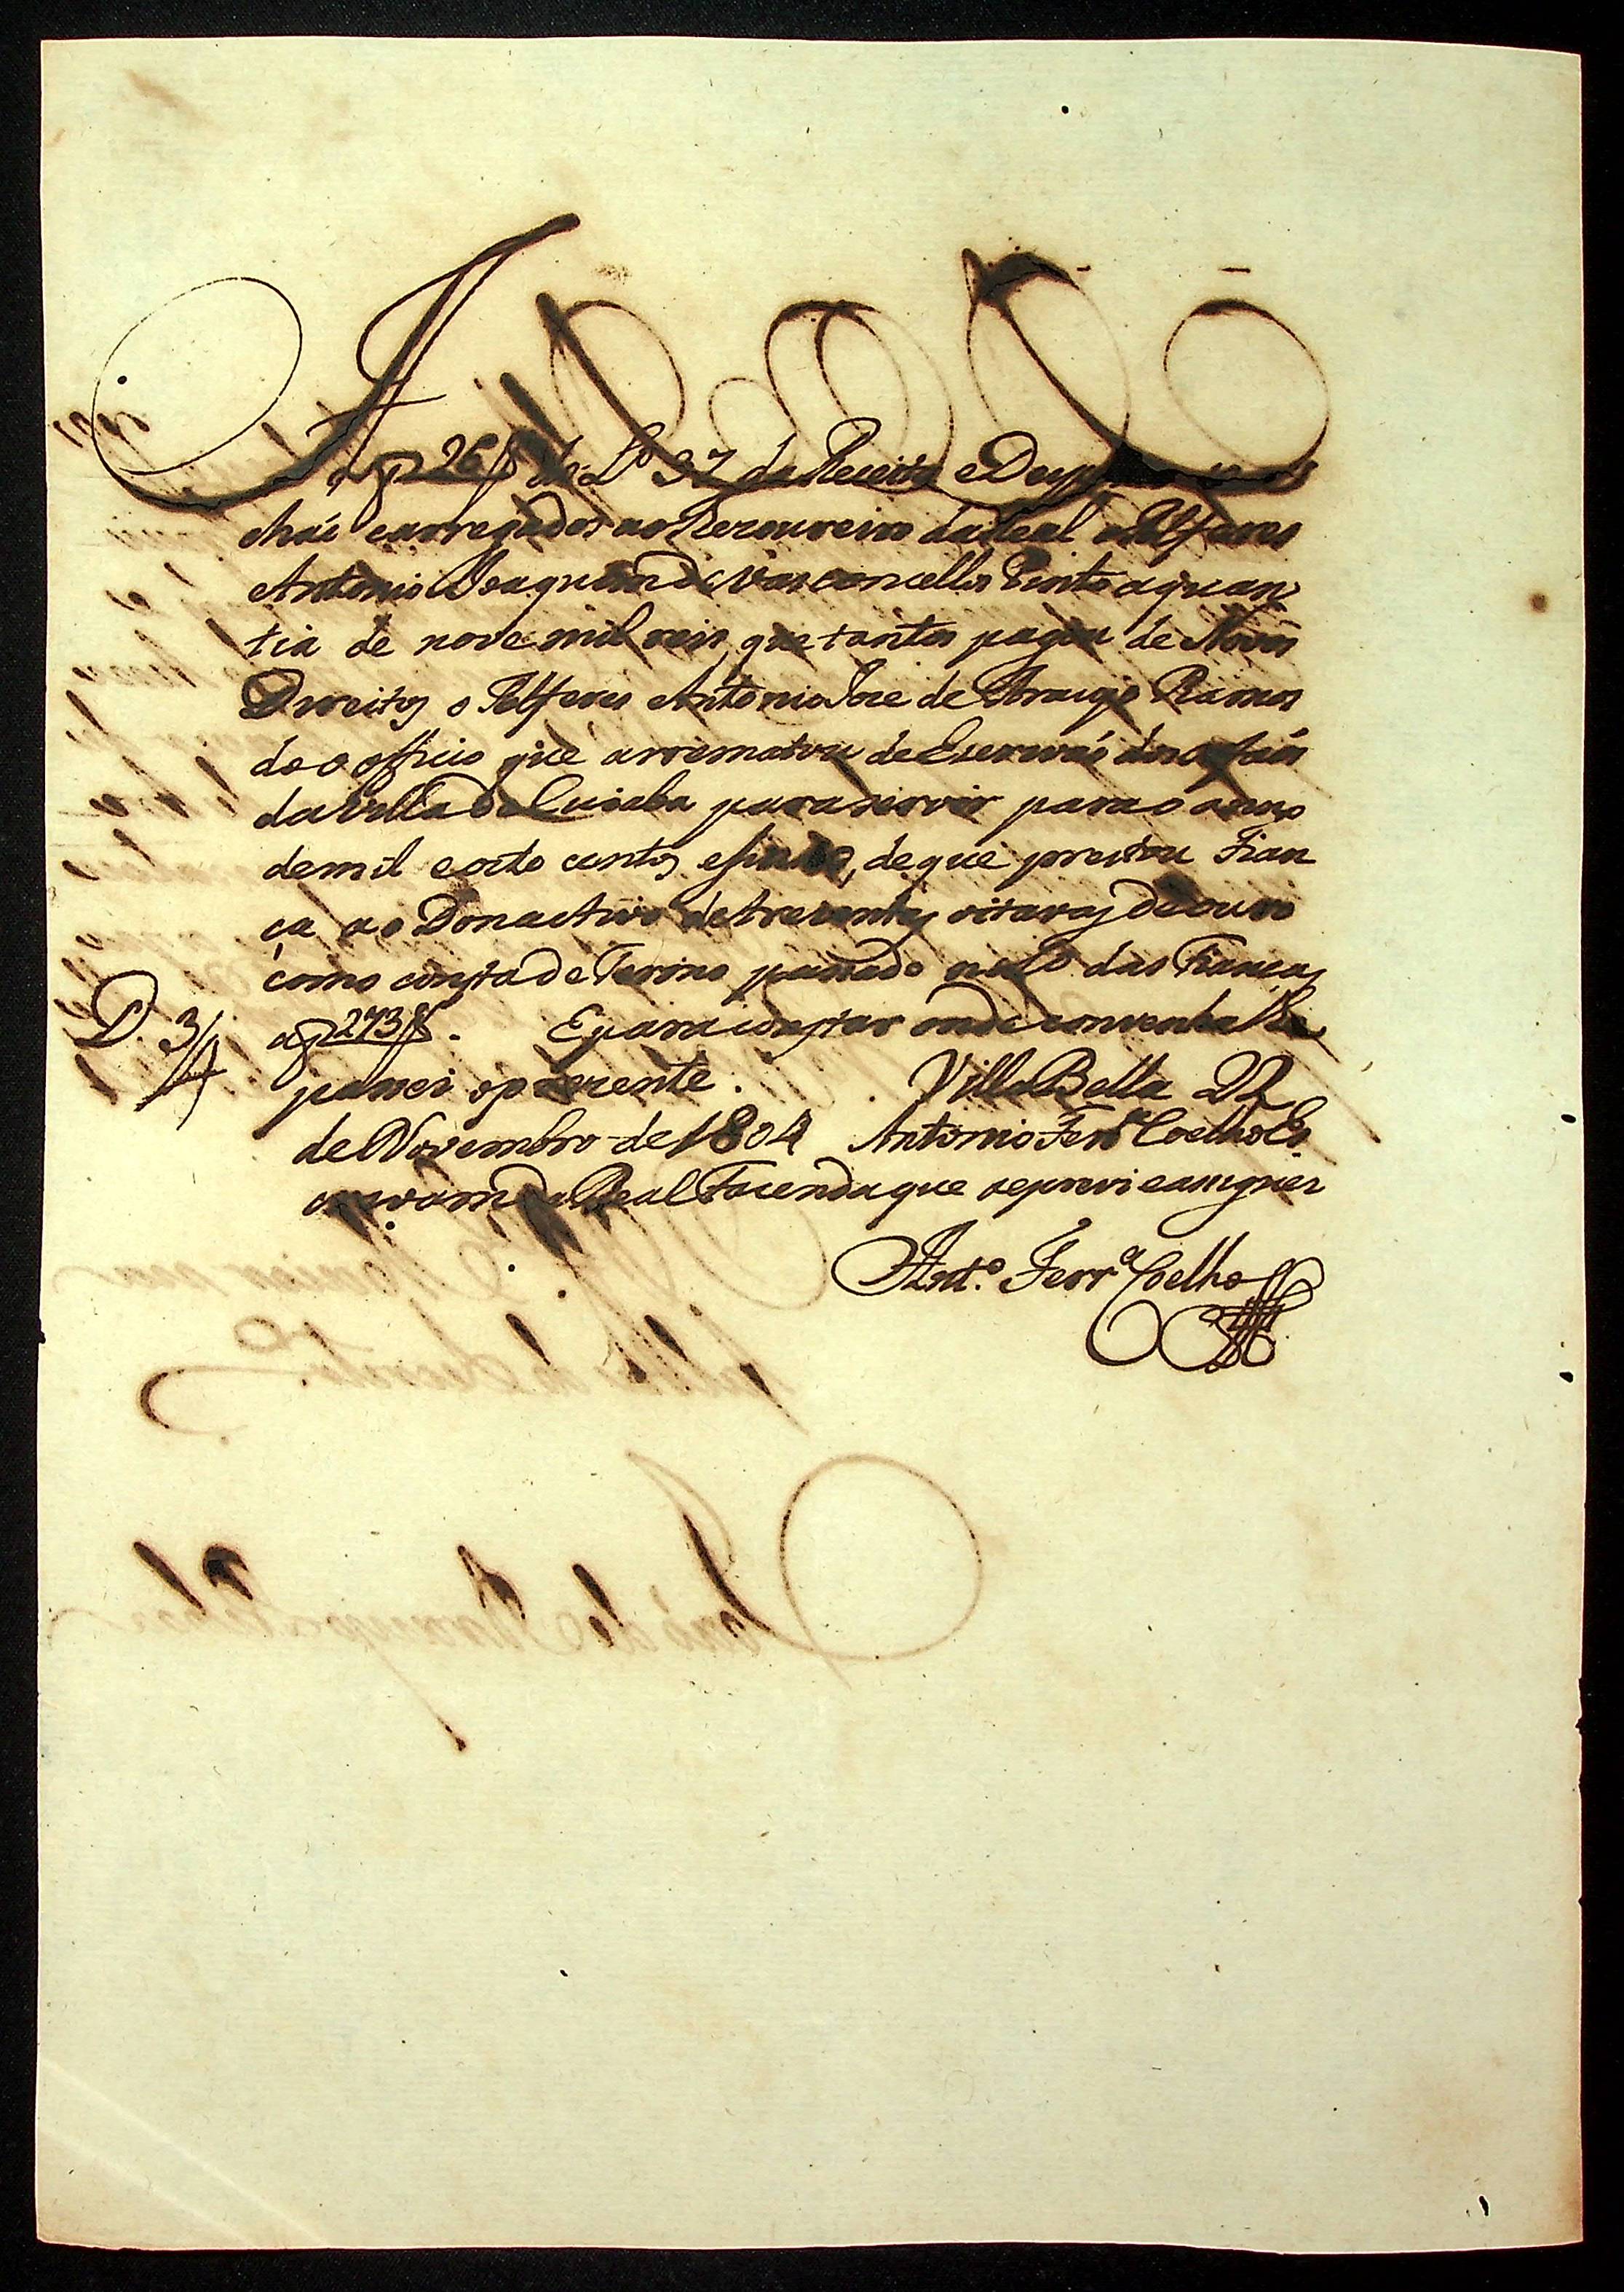 A f 26 do Lº 37 da Receita e Despeza se
cháo carregados ao Thezoureiro da Real o Alferes
Antonio Joaquim de Vasconcellos Pinto a quan
tia de nove mil reis, que tantos pagou de Novos
Direitos o Alferes Antonio Joze de Araujo Ramos
do officio que arrematou de Escrivaó dos orfaós
da Villa do Cuiaba para servir para o anno
de mil e oito centos e sinco, de que prestou Fian
ça ao Donactivo de trezentas oitavas de ouro
como consta de Termo passado no Lº das Fianças
D. 3/ a f 273. E para constar onde convenha lhe
passei o prezente. Villa Bella 22
de Novembro de 1804 Antonio Ferrª Coelho Es
crivam da Real Fazenda que o escrevi e asignei
Antº. Ferrª Coelho